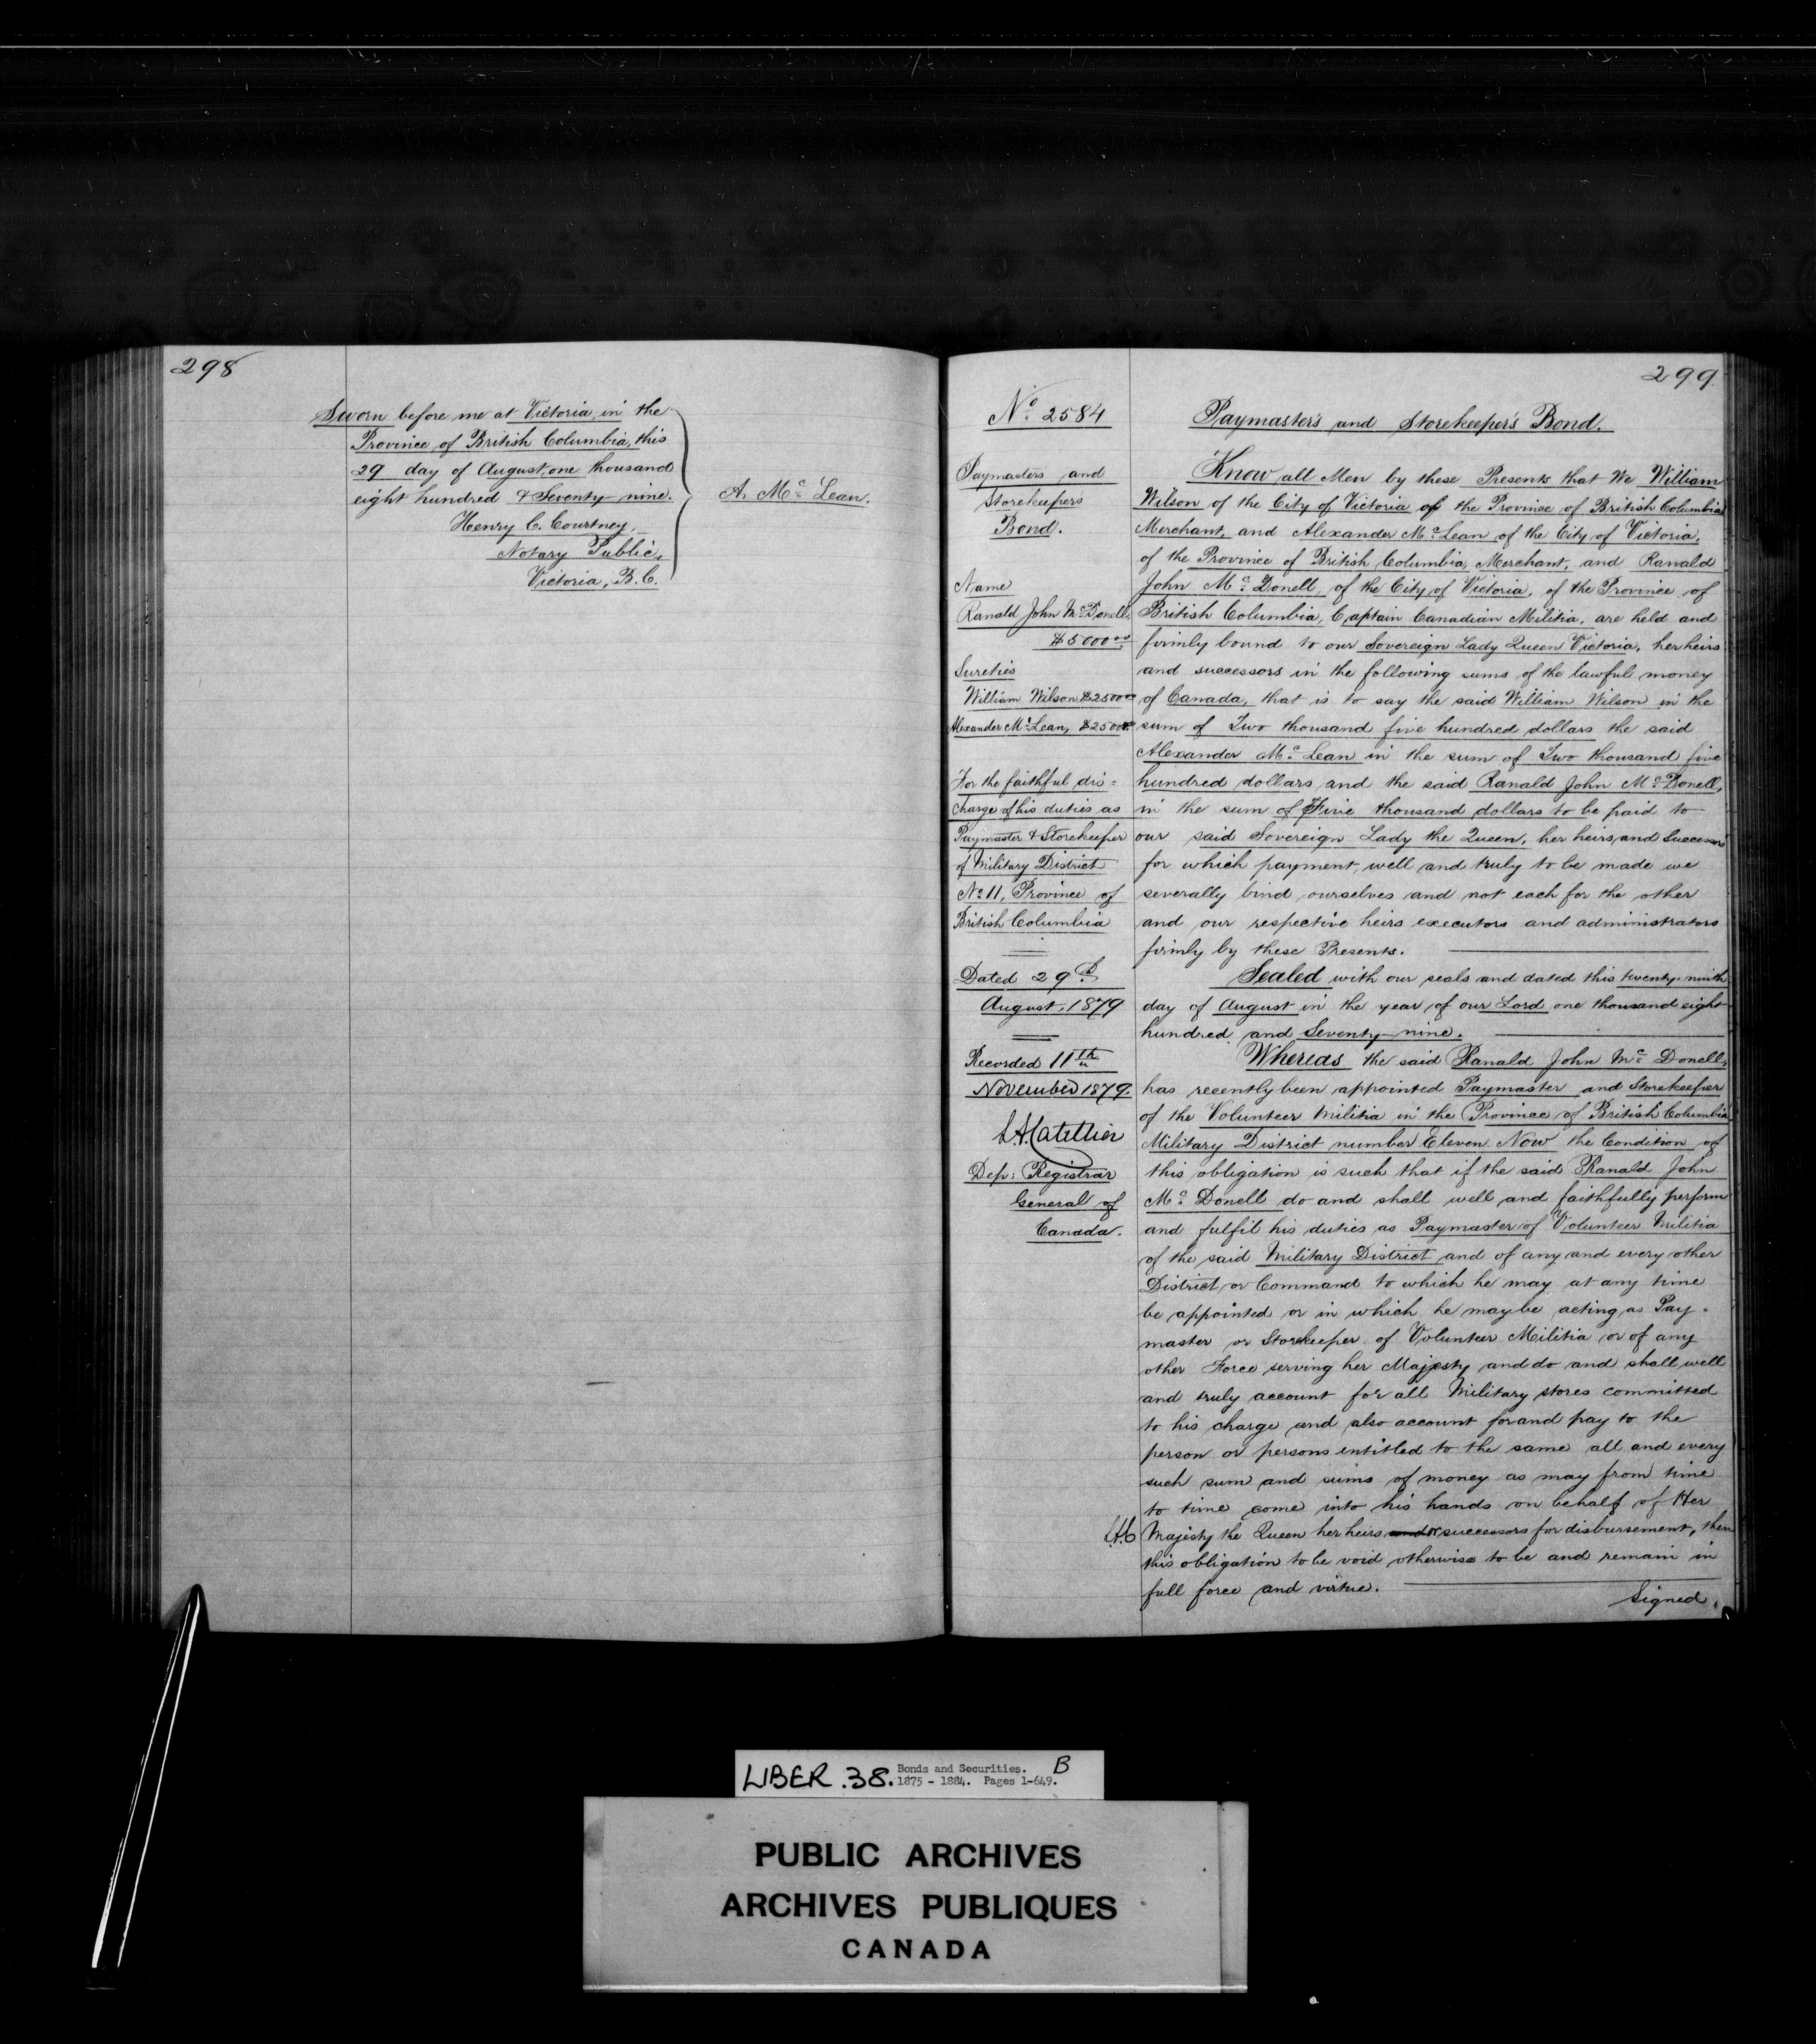 298
Sworn before me at Victoria in the
Province of British Columbia, this
29 day of August, one thousand
eight hundred & Seventy-nine.
A. Mc Lean.
Henry C. Courtney,
Notary Public,
Victoria, B.C.
299
No 2584
Paymasters and
Storekeepers
Bond.
Name
Ranald John McDonell,
$5000.00
Sureties
William Wilson $2500.00
Alexander McLean, $2500.00
For the faithful dis=
charge of his duties as
Paymaster & Storekeeper
of Military District
No 11, Province of
British Columbia
Dated 29th
August, 1879
Recorded 11th
November 1879.
Dep: Registrar
General of
Canada.
Paymaster's and Storekeeper's Bond.
Know all Men by these Presents that We William
Wilson of the City of Victoria of the Province of British Columbia
Merchant, and Alexander McLean of the City of Victoria,
of the Province of British Columbia, Merchant, and Ranald
John Mc Donell, of the City of Victoria, of the Province of
British Columbia, Captain Canadian Militia, are held and
firmly bound to our Sovereign Lady Queen Victoria, her heirs
and successors in the following sums of the lawful money
of Canada, that is to say the said William Wilson in the
sum of Two thousand five hundred dollars the said
Alexander Mc Lean in the sum of Two thousand five
hundred dollars and the said Ranald John McDonell,
in the sum of Five thousand dollars to be paid to
our said Sovereign Lady the Queen, her heirs, and Successors
for which payment, well and truly to be made we
severally bind ourselves and not each for the other
and our respective heirs executors and administrators
firmly by these Presents.
Sealed with our seals and dated this twenty-ninth
day of August in the year of our Lord one thousand eight-
hundred and Seventy-nine.
Whereas the said Ranald John Mc Donell,
has recently been appointed Paymaster and Storekeeper
of the Volunteer Militia in the Province of British Columbia
Military District number Eleven Now the Condition of
this obligation is such that if the said Ranald John
Mc Donell do and shall well and faithfully perform
and fulfil his duties as Paymaster of Volunteer Militia
of the said Military District and of any and every other
District or Command to which he may at any time
be appointed or in which he may be acting as Pay=
master or Storekeeper of Volunteer Militia or of any
other Force serving her Majesty and do and shall well
and truly account for all Military stores committed
to his charge and also account for and pay to the
person or persons entitled to the same all and every
such sum and sums of money as may from time
to time come into his hands on behalf of Her
Majesty the Queen her heirs and or successors for disbursement, then
this obligation to be void otherwise to be and remain in
full force and virtue.
Signed.
LIBER .38. Bonds and Securities. B
1875 - 1884. Pages 1-649.
PUBLIC ARCHIVES
ARCHIVES PUBLIQUES
CANADA